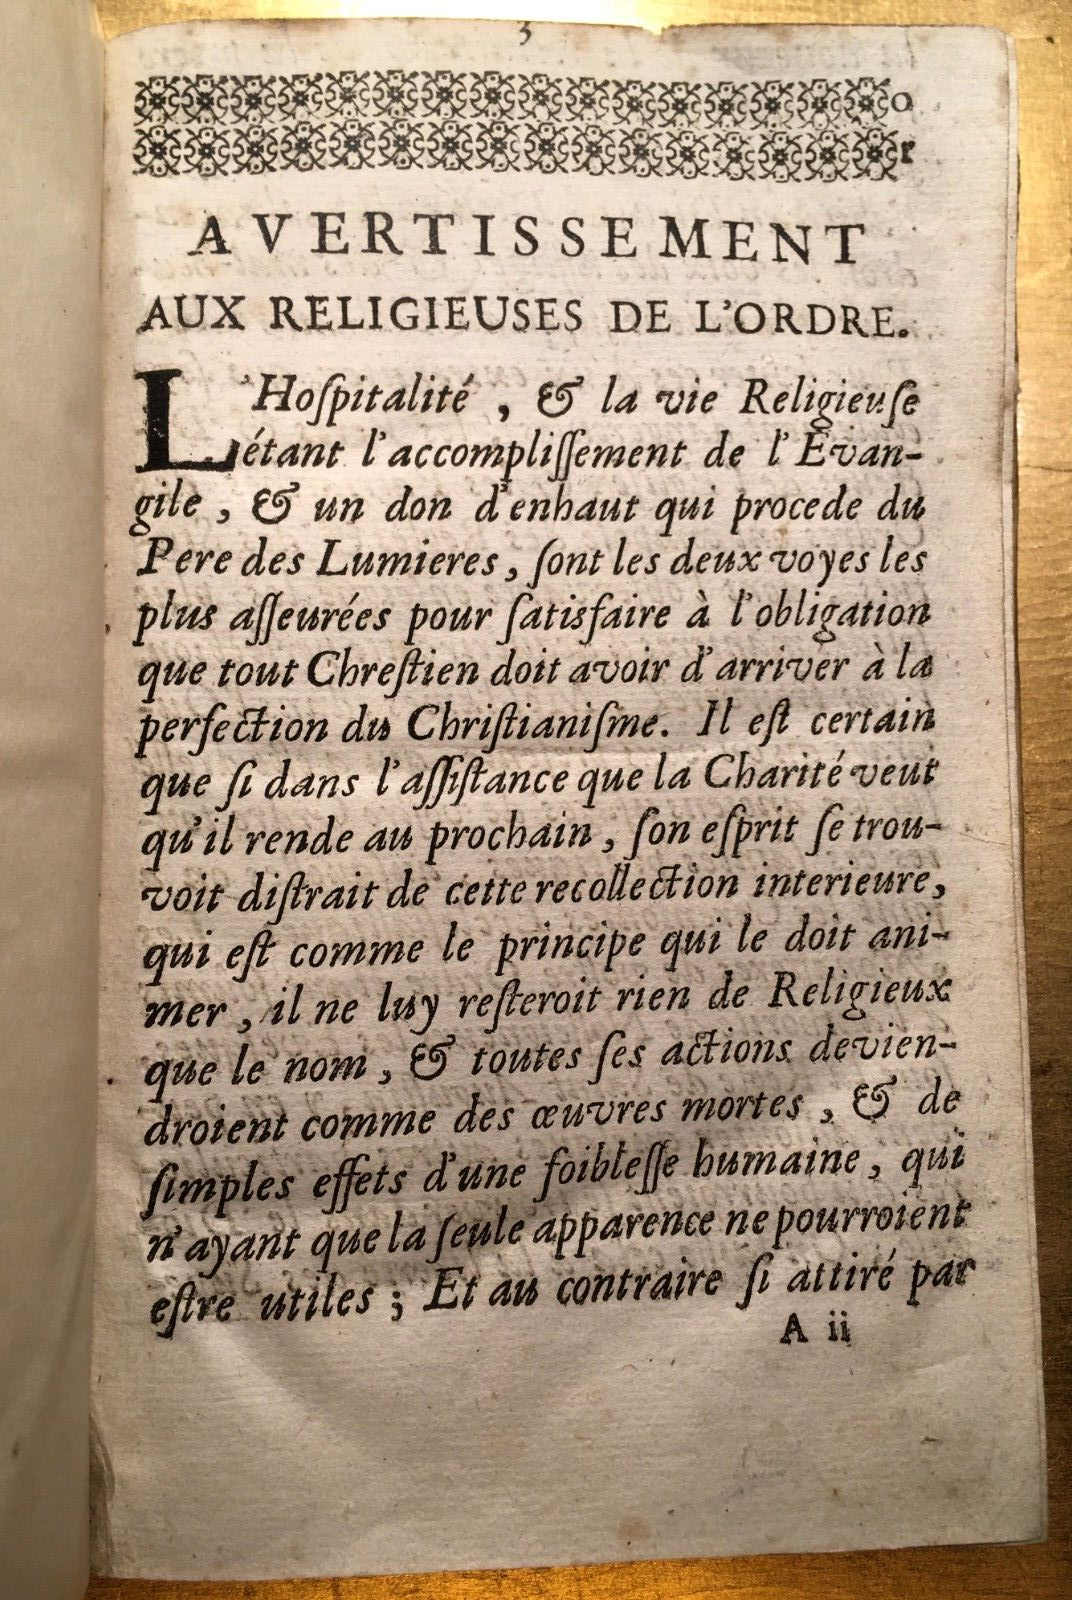 3
AVERTISSEMENT
AUX RELIGIEUSES DE L'ORDRE.
L'Hoſpitalité, & la vie Religieuſe
étant l'accompliſſement de l'Evan-
gile, & un don d'enhaut qui procede du
Pere des Lumieres, ſont les deux voyes les
plus aſſeurées pour ſatisfaire à l'obligation
que tout Chreſtien doit avoir d'arriver à la
perfection du Chriſtianiſme. Il eſt certain
que ſi dans l'aſſiſtance que la Charité veut
qu'il rende au prochain, ſon eſprit ſe trou-
voit diſtrait de cette recollection interieure,
qui eſt comme le principe qui le doit ani-
mer, il ne luy reſteroit rien de Religieux
que le nom, & toutes ſes actions devien-
droient comme des œuvres mortes, & de
ſimples effets d'une foibleſſe humaine, qui
n'ayant que la ſeule apparence ne pourroient
eſtre utiles; Et au contraire ſi attiré par
A ii